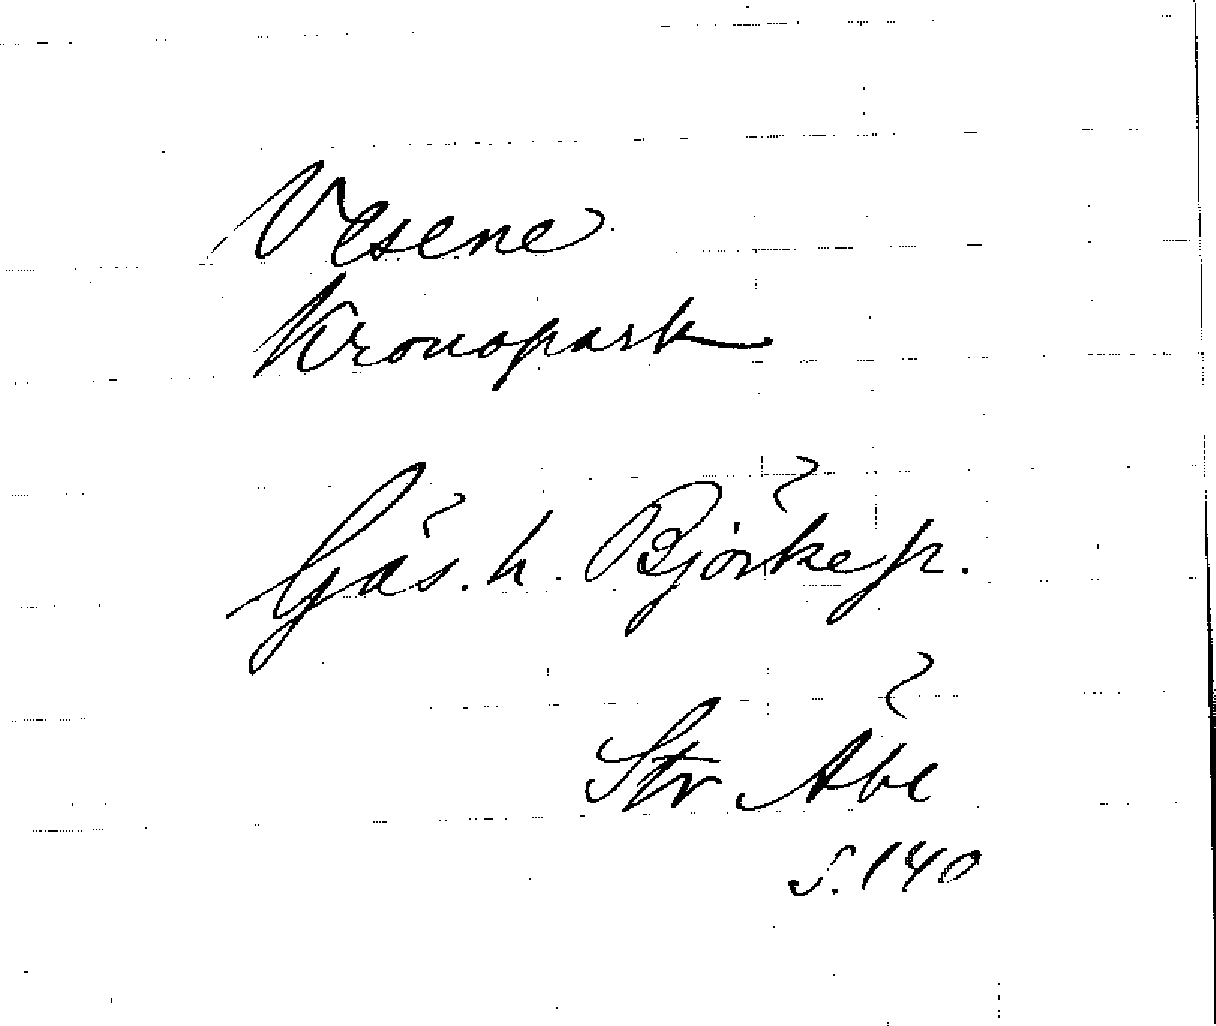 Vesene
Kronopark
Gäs. h. Björke p.
Str Åbe
s. 140